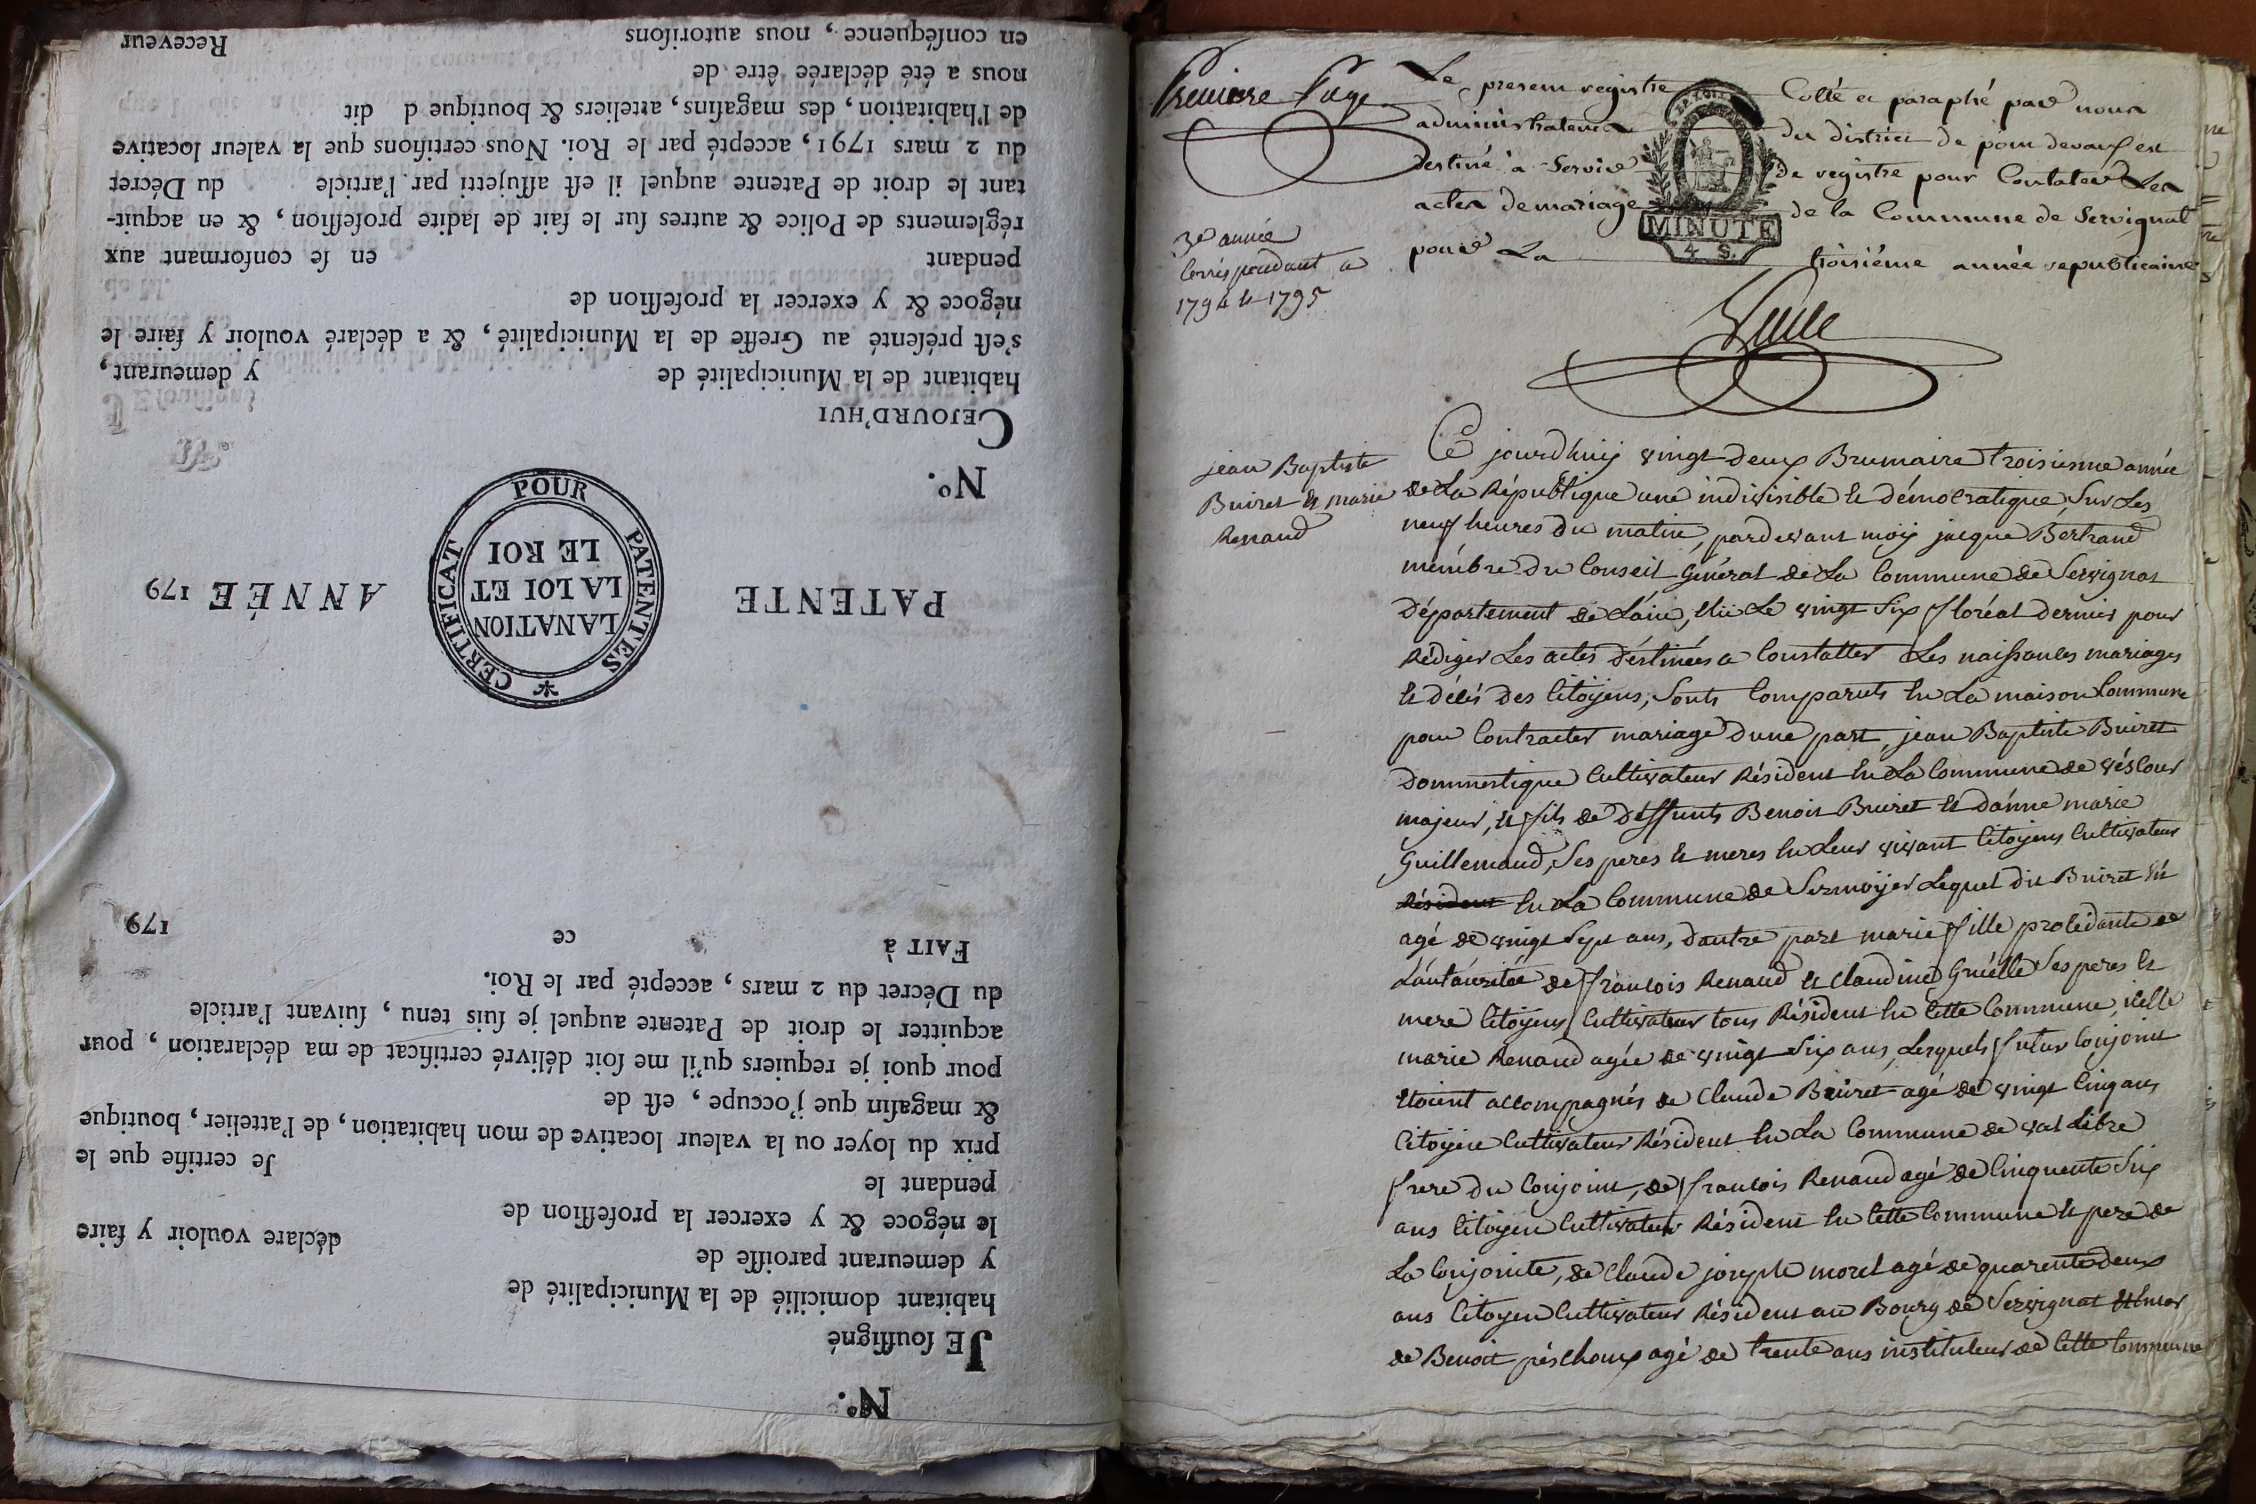 Receveur
en conséquence, nous autorisons
nous a été déclarée être de
de l'habitation, des magasins, atteliers & boutique d dit
du 2 mars 1791, accepté par le Roi. Nous certifions que la valeur locative
tant le droit de Patente auquel il est assujetti par l'article du Décret
réglements de Police & autres sur le fait de ladite profession, & en acquit-
pendant en se conformant aux
négoce & y exercer la profession de
s'est présenté au Greffe de la Municipalité, & a déclaré vouloir y faire le
habitant de la Municipalité de y demeurant,
CEJOURD'HUI
N.o
PATENTE ANNÉE 179
CERTIFICAT POUR PATENTES
LA NATION
LA LOI ET
LE ROI
FAIT à ce 179
du Décret du 2 mars, accepté par le Roi.
acquitter le droit de Patente auquel je suis tenu, suivant l'article
pour quoi je requiers qu'il me soit délivré certificat de ma déclaration, pour
& magasin que j'occupe, est de
prix du loyer ou la valeur locative de mon habitation, de l'attelier, boutique
pendant le Je certifie que le
le négoce & y exercer la profession de
y demeurant paroisse de déclare vouloir y faire
habitant domicilié de la Municipalité de
JE soussigné
N.o
Premiere Page
Le present registre Cotté et paraphé par nous
administrateur du district de pont devaux est
destiné a Servir de registre pour Constater Les
actes de mariage de la Commune de Servignat
pour La troisiéme année republicaine
MINUTE
4 S.
3e année
Correspondant a
1794 et 1795
jean Baptiste
Buiret et marie
Renaud
Ce jourd'huy vingt deux Brumaire troisieme année
de La République une indivisible et démocratique, Sur Les
neuf heures du matin, pardevant moy jacque Bertrand
mémbre du Conseil Général de La Commune de Servignat
Département de L'ain, élu Le vingt Six floréal dernier pour
Rédiger Les actes déstinées a Constatter Les naissances mariages
et décés des Citoyens, Sonts Comparuts En La maison Commune
pour Contracter mariage d'une part, jean Baptiste Buiret
Dommestique Cultivateur Résident En La Commune de véscour
majeur, et fils de déffunts Benoit Buiret et d'anne marie
Guillemaud, Ses peres et meres En Leur vivant Citoyens Cultivateur
Résident En La Commune de Sermoyer Lequel dit Buiret Est
agé de vingt Sept ans, d'autre part marie fille procédante de
L'autauritée de françois Renaud et Claudine Gruélle Ses peres et
mere Citoyens Cultivateur tous Résident En Cette Commune, icelle
marie Renaud agée de vingt Six ans, Lesquels futur Conjoint
Etoient accompagnés de Claude Buiret agé de vingt Cinq ans
Citoyen Cultivateur Résident En La Commune de val Libre
frere du Conjoint, de françois Renaud agé de Cinquente Six
ans Citoyen Cultivateur Résident En Cette Commune et pere de
La Conjointe, de Claude joseph morel agé de quarente deux
ans Citoyen Cultivateur Résident au Bourg de Servignat
de Benoit péschoux agé de trente ans instituteur de Cette Commune